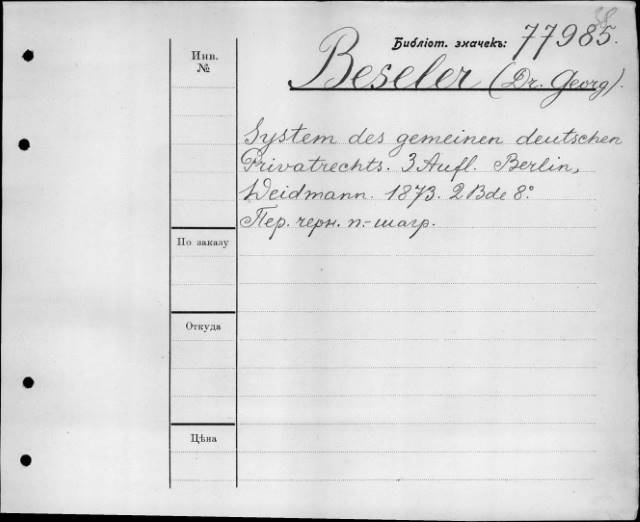 Библіот. значекъ: 77985.
Beseler (Dr. Georg).
Инв.
№
System des gemeinen deutschen
Privatrechts. 3 Aufl. Berlin,
Weidmann. 1873. 2 Bde 8°.
Пер. черн. п.-шагр.
По заказу
Откуда
Цѣна